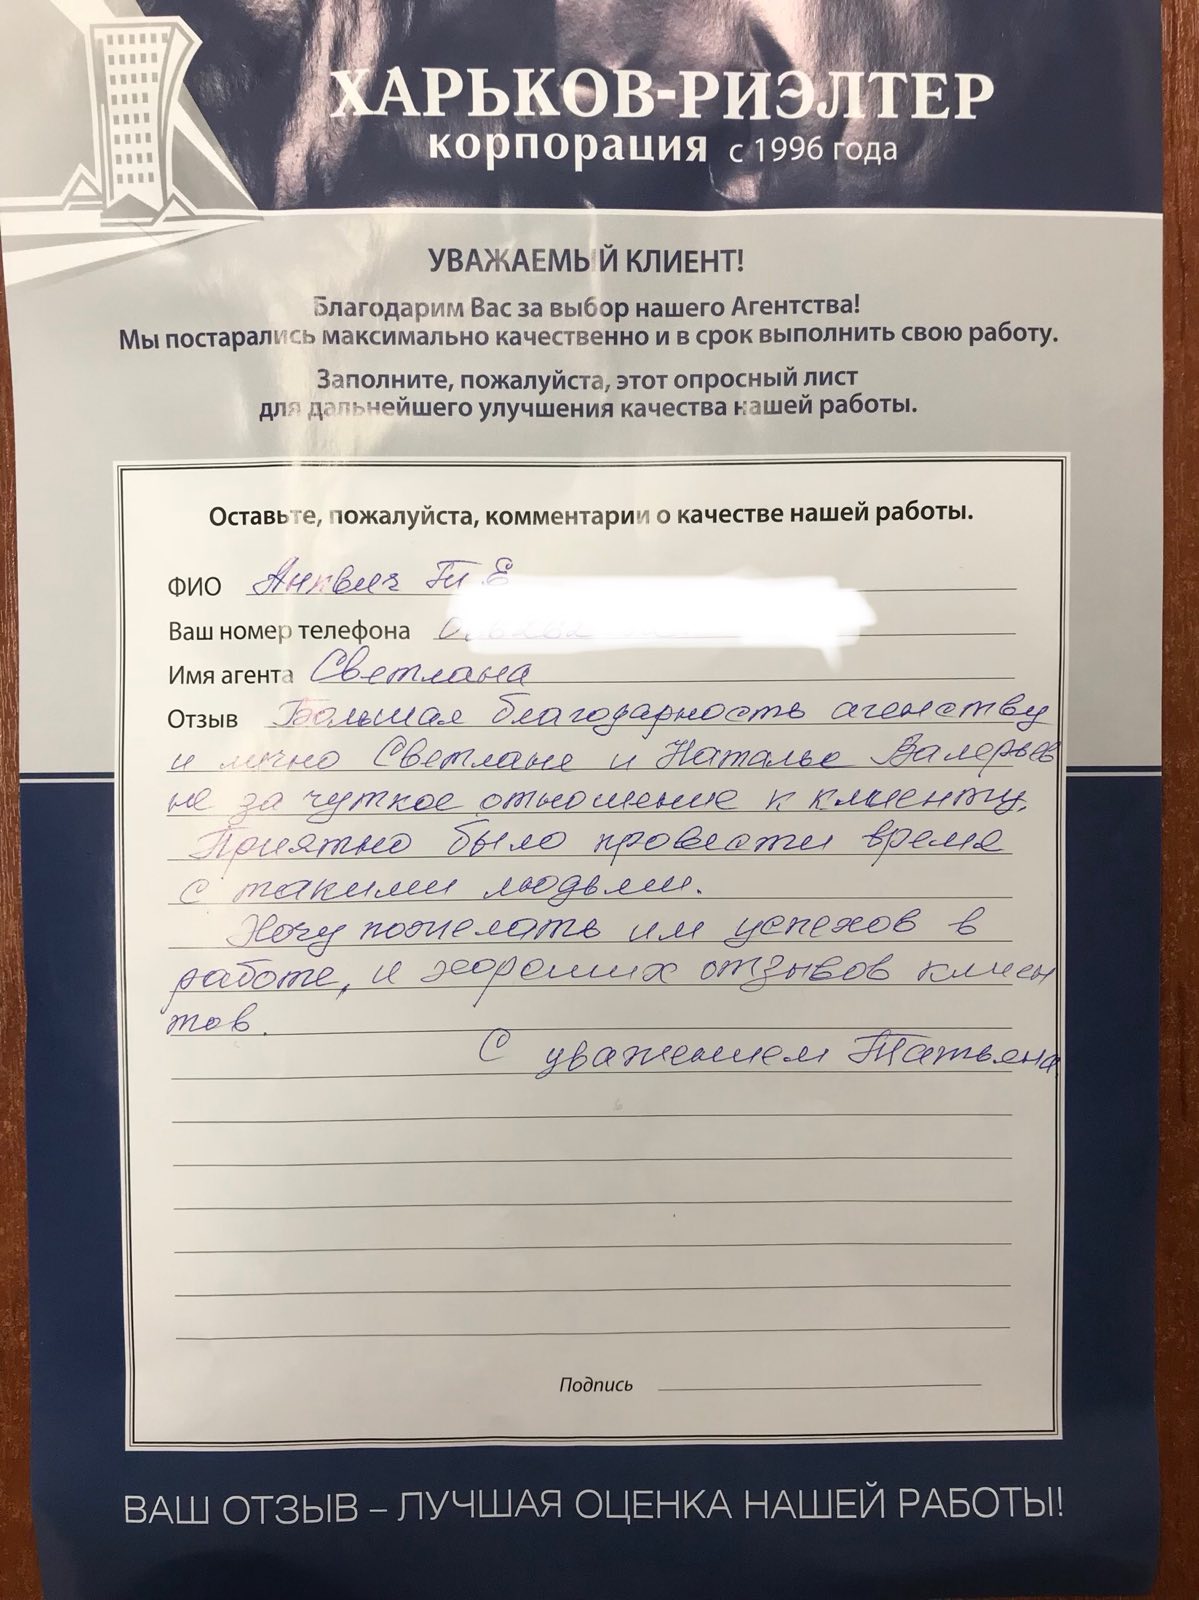 ХАРЬКОВ-РИЭЛТЕР
корпорация с 1996 года
УВАЖАЕМЫЙ КЛИЕНТ!
Благодарим Вас за выбор нашего Агентства!
Мы постарались максимально качественно и в срок выполнить свою работу.
Заполните, пожалуйста, этот опросный лист
для дальнейшего улучшения качества нашей работы.
Оставьте, пожалуйста, комментарии о качестве нашей работы.
ФИО Т Е
Ваш номер телефона
Имя агента Светлана
Отзыв Большая благодарность агенству
и лично Светлане и Наталье Валерьев
не за чуткое отношение к клиенту.
Приятно было провести время
с такими людьми.
Хочу пожелать им успехов в
работе, и хороших отзывов клиен
тов.
С уважением Татьяна.
Подпись
ВАШ ОТЗЫВ – ЛУЧШАЯ ОЦЕНКА НАШЕЙ РАБОТЫ!